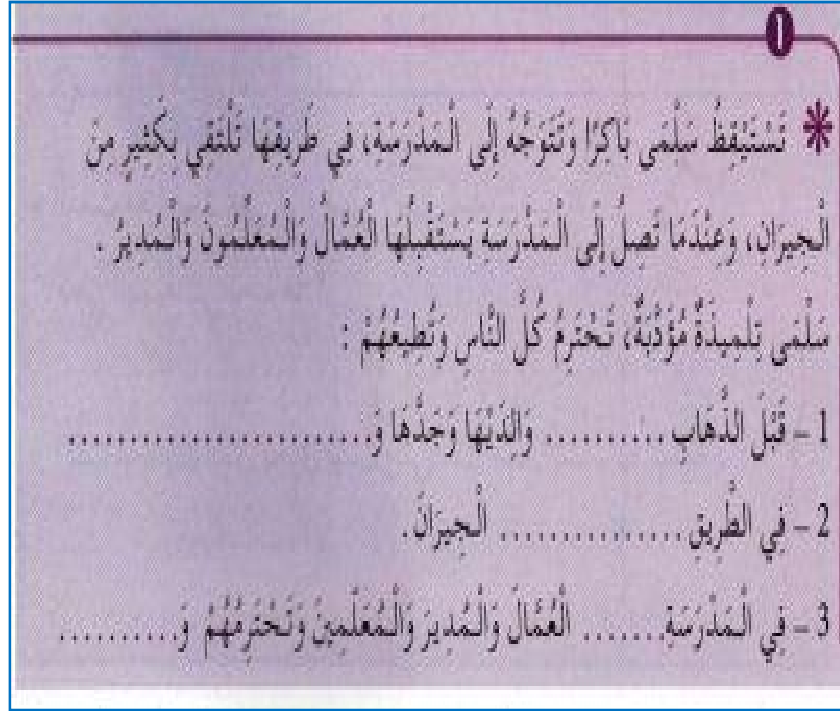 1
* تَسْتَيْقِظُ سَلْمَى بَاكِرًا وَتَتَوَجَّهُ إِلَى الْمَدْرَسَةِ، فِي طَرِيقِهَا تَلْتَقِي بِكَثِيرٍ مِنَ
الْجِيرَانِ، وَعِنْدَمَا تَصِلُ إِلَى الْمَدْرَسَةِ يَسْتَقْبِلُهَا الْعُمَّالُ وَالْمُعَلِّمُونَ وَالْمُدِيرُ .
سَلْمَى تِلْمِيذَةٌ مُؤَدَّبَةٌ، تَحْتَرِمُ كُلَّ النَّاسِ وَتُطِيعُهُمْ :
1 – قَبْلَ الذَّهَابِ .......... وَالِدَيْهَا وَجَدَّهَا وَ........................
2 – فِي الطَّرِيقِ ............... الْجِيرَانَ.
3 – فِي الْمَدْرَسَةِ....... الْعُمَّالَ وَالْمُدِيرَ وَالْمُعَلِّمِينَ وَتَحْتَرِمُهُمْ وَ...........